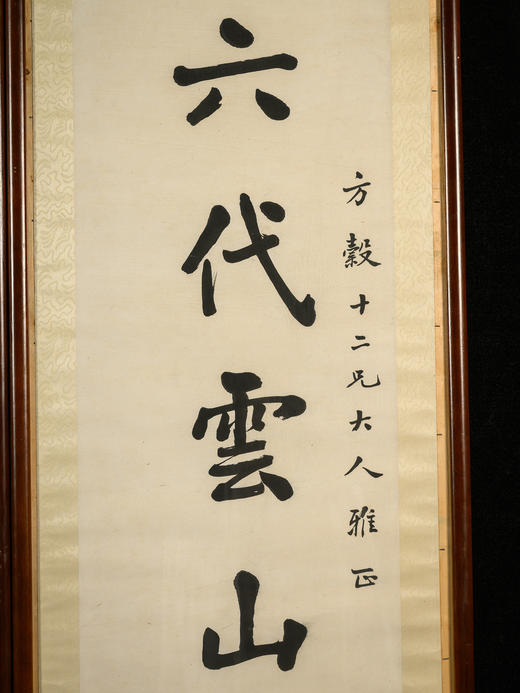 方穀十二兄大人雅正
六代雲山